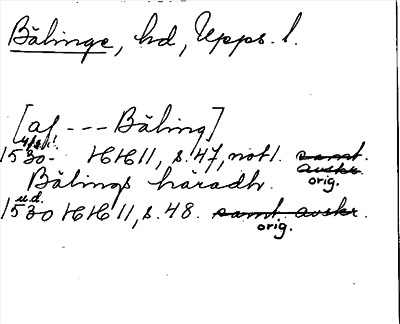 Bälinge, hd, Upps. l.
[af --- Bäling]
1530- HH 11, s. 47, not 1. samt. avskr. orig.
Bälings häradh.
1530 u.d. HH 11, s. 48. samt avskr. orig.